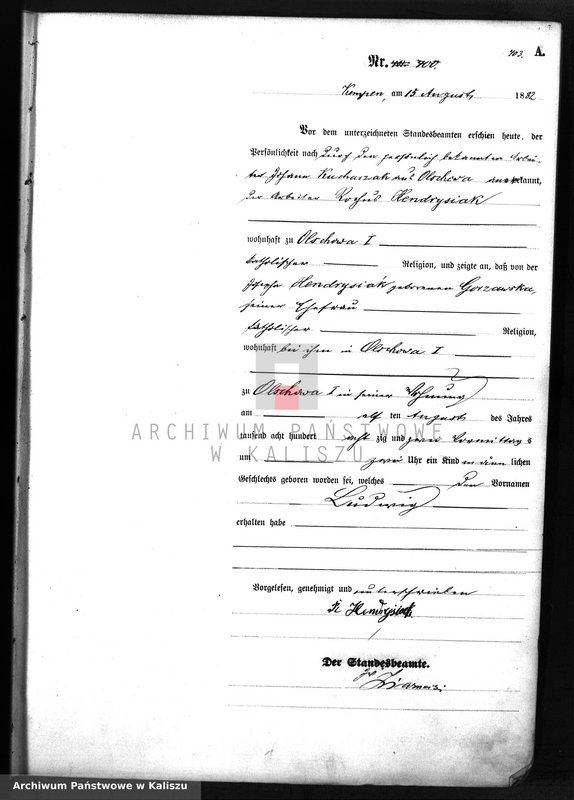 403. A.
Nr. 400.
Kempen, am 15 August 1882
Vor dem unterzeichneten Standesbeamten erschien heute, der
Persönlichkeit nach durch den persönlich bekannten Arbei-
ter Johann Kucharzak aus Olschowa anerkannt,
der Arbeiter Rochus Hendrysiak
wohnhaft zu Olschowa I
katholischer Religion, und zeigte an, daß von der
Josepha Hendrysiak geborenen Gorzawska,
seiner Ehefrau
katholischer Religion,
wohnhaft bei ihm in Olschowa I
zu Olschowa I in seiner Wohnung
am elf ten August des Jahres
tausend acht hundert acht zig und zwei Vormittags
um zwei Uhr ein Kind männ lichen
Geschlechts geboren worden sei, welches den Vornamen
Ludwig
erhalten habe
Vorgelesen, genehmigt und unterschrieben
Hendrysiak
Der Standesbeamte.
ARCHIWUM PAŃSTWOWE
W KALISZU
Archiwum Państwowe w Kaliszu